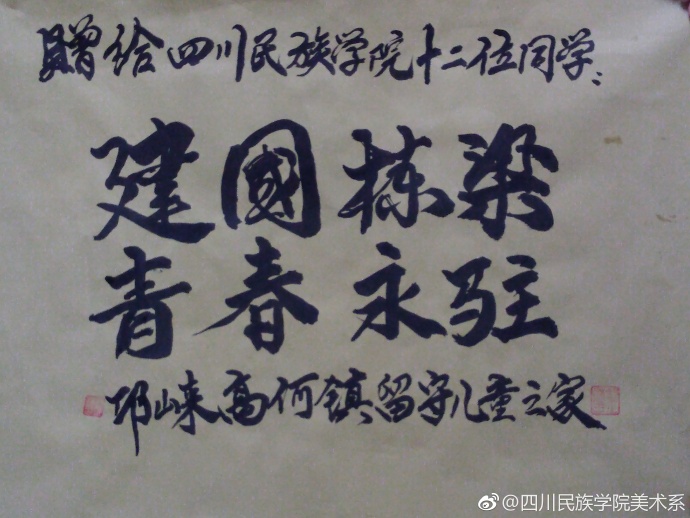 赠给四川民族学院十二位同学:
建國栋梁
青春永驻
邛崃高何镇留守儿童之家
@四川民族学院美术系